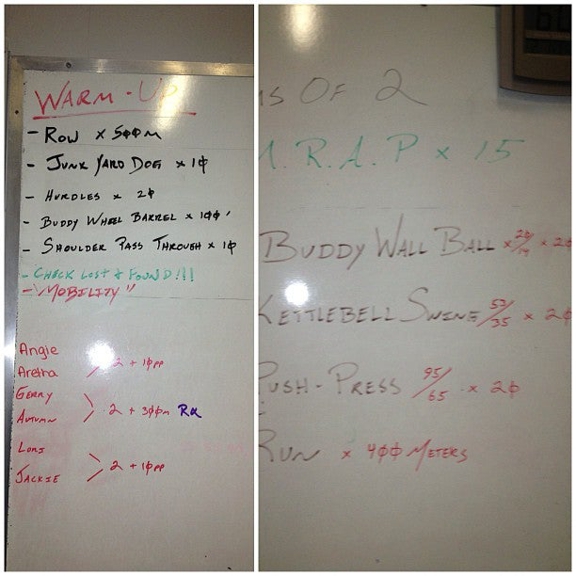 WARM-UP
- ROW x 500m
- JUNK YARD DOG x 10
- HURDLES x 20
- BUDDY WHEEL BARREL x 100'
- SHOULDER PASS THROUGH x 10
- CHECK LOST & FOUND!!!
- "MOBILITY"
Angie
Aretha > 2 + 10pp
GERRY
AUTUMN > 2 + 300m RX
LORI
JACKIE > 2 + 10pp
OF 2
M.R.A.P x 15
BUDDY WALL BALL x 20/14 x 20
KETTLEBELL SWING 53/35 x 20
PUSH-PRESS 95/65 x 20
RUN x 400 METERS